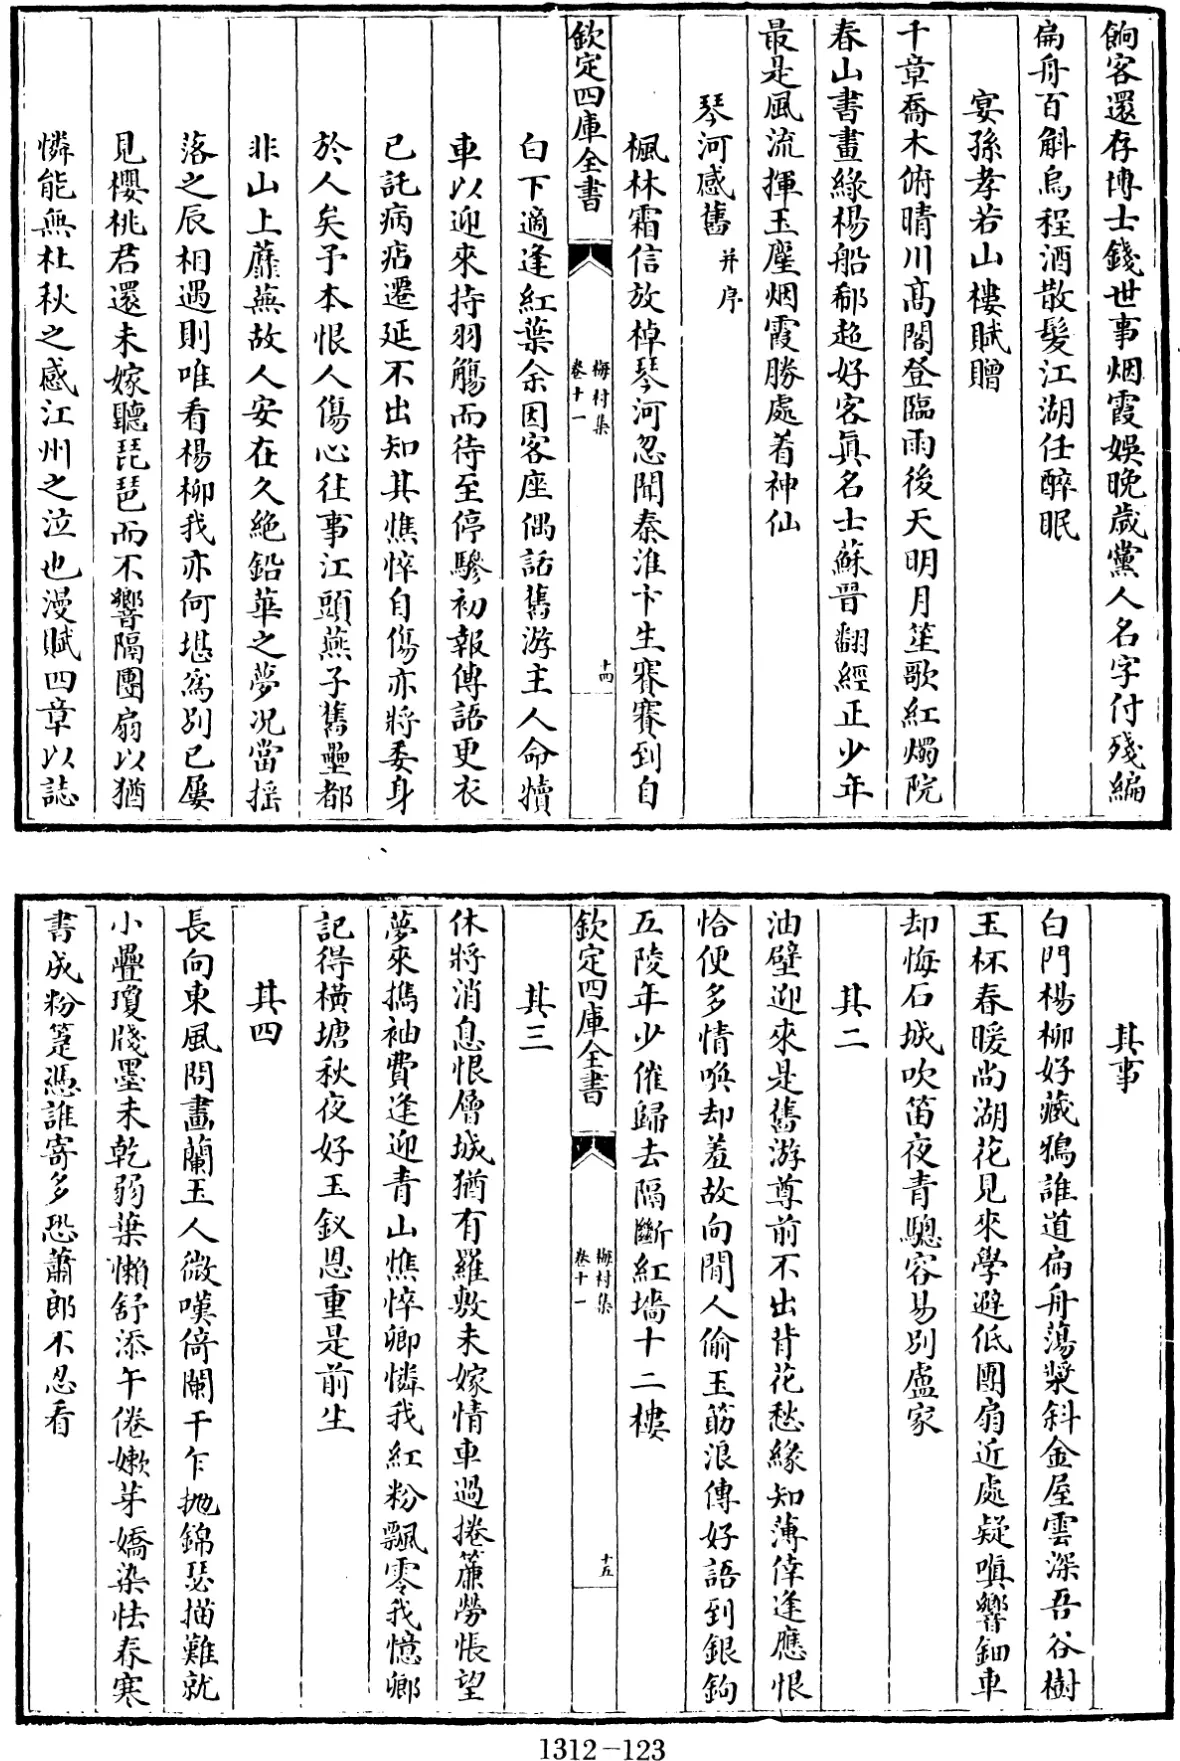 餉客還存博士錢世事烟霞娛晚歲黨人名字付殘編
扁舟百斛烏程酒散髮江湖任醉眠
宴孫孝若山樓賦贈
千章喬木俯晴川髙閣登臨雨後天明月笙歌紅燭院
春山書畫緑楊船郗超好客真名士蘇晉翻經正少年
最是風流揮玉麈烟霞勝處着神仙
琴河感舊 并序
楓林霜信放棹琴河忽聞秦淮卞生賽賽到自
欽定四庫全書
梅村集
卷十一
十四
白下適逢紅葉余因客座偶話舊游主人命犢
車以迎來持羽觴而待至停驂初報傳語更衣
已託病痁遷延不出知其憔悴自傷亦將委身
於人矣予本恨人傷心往事江頭燕子舊壘都
非山上蘼蕪故人安在久絶鉛華之夢况當揺
落之辰相遇則唯看楊柳我亦何堪為別已屢
見櫻桃君還未嫁聽琵琶而不響隔團扇以猶
憐能無杜秋之感江州之泣也漫賦四章以誌
其事
白門楊柳好藏鴉誰道扁舟蕩槳斜金屋雲深吾谷樹
玉杯春暖尚湖花見來學避低團扇近處疑嗔響鈿車
却悔石城吹笛夜青驄容易別盧家
其二
油壁迎來是舊游尊前不出背花愁緣知薄倖逢應恨
恰便多情喚却羞故向閒人偷玉筯浪傳好語到銀鈎
五陵年少催歸去隔斷紅墻十二樓
欽定四庫全書
梅村集
卷十一
十五
其三
休將消息恨層城猶有羅敷未嫁情車過捲簾勞悵望
夢來攜袖費逢迎青山憔悴卿憐我紅粉飄零我憶卿
記得橫塘秋夜好玉釵恩重是前生
其四
長向東風問畫蘭玉人微嘆倚闌干乍抛錦瑟描難就
小疊瓊牋墨未乾弱葉懶舒添午倦嫩芽嬌染怯春寒
書成粉箑憑誰寄多恐蕭郎不忍看
1312-123